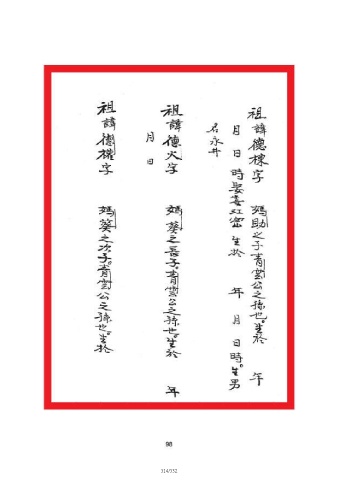 祖諱德棟字 鴻助之子青雲公之孫也。生於 年
月 日 時娶 生於 年 月 日 時。生男
名永升
祖諱德火字 鴻葵之長子青雲公之孫也。生於 年
月 日
祖諱德權字 鴻葵之次子。青雲公之孫也。生於
98
314/352